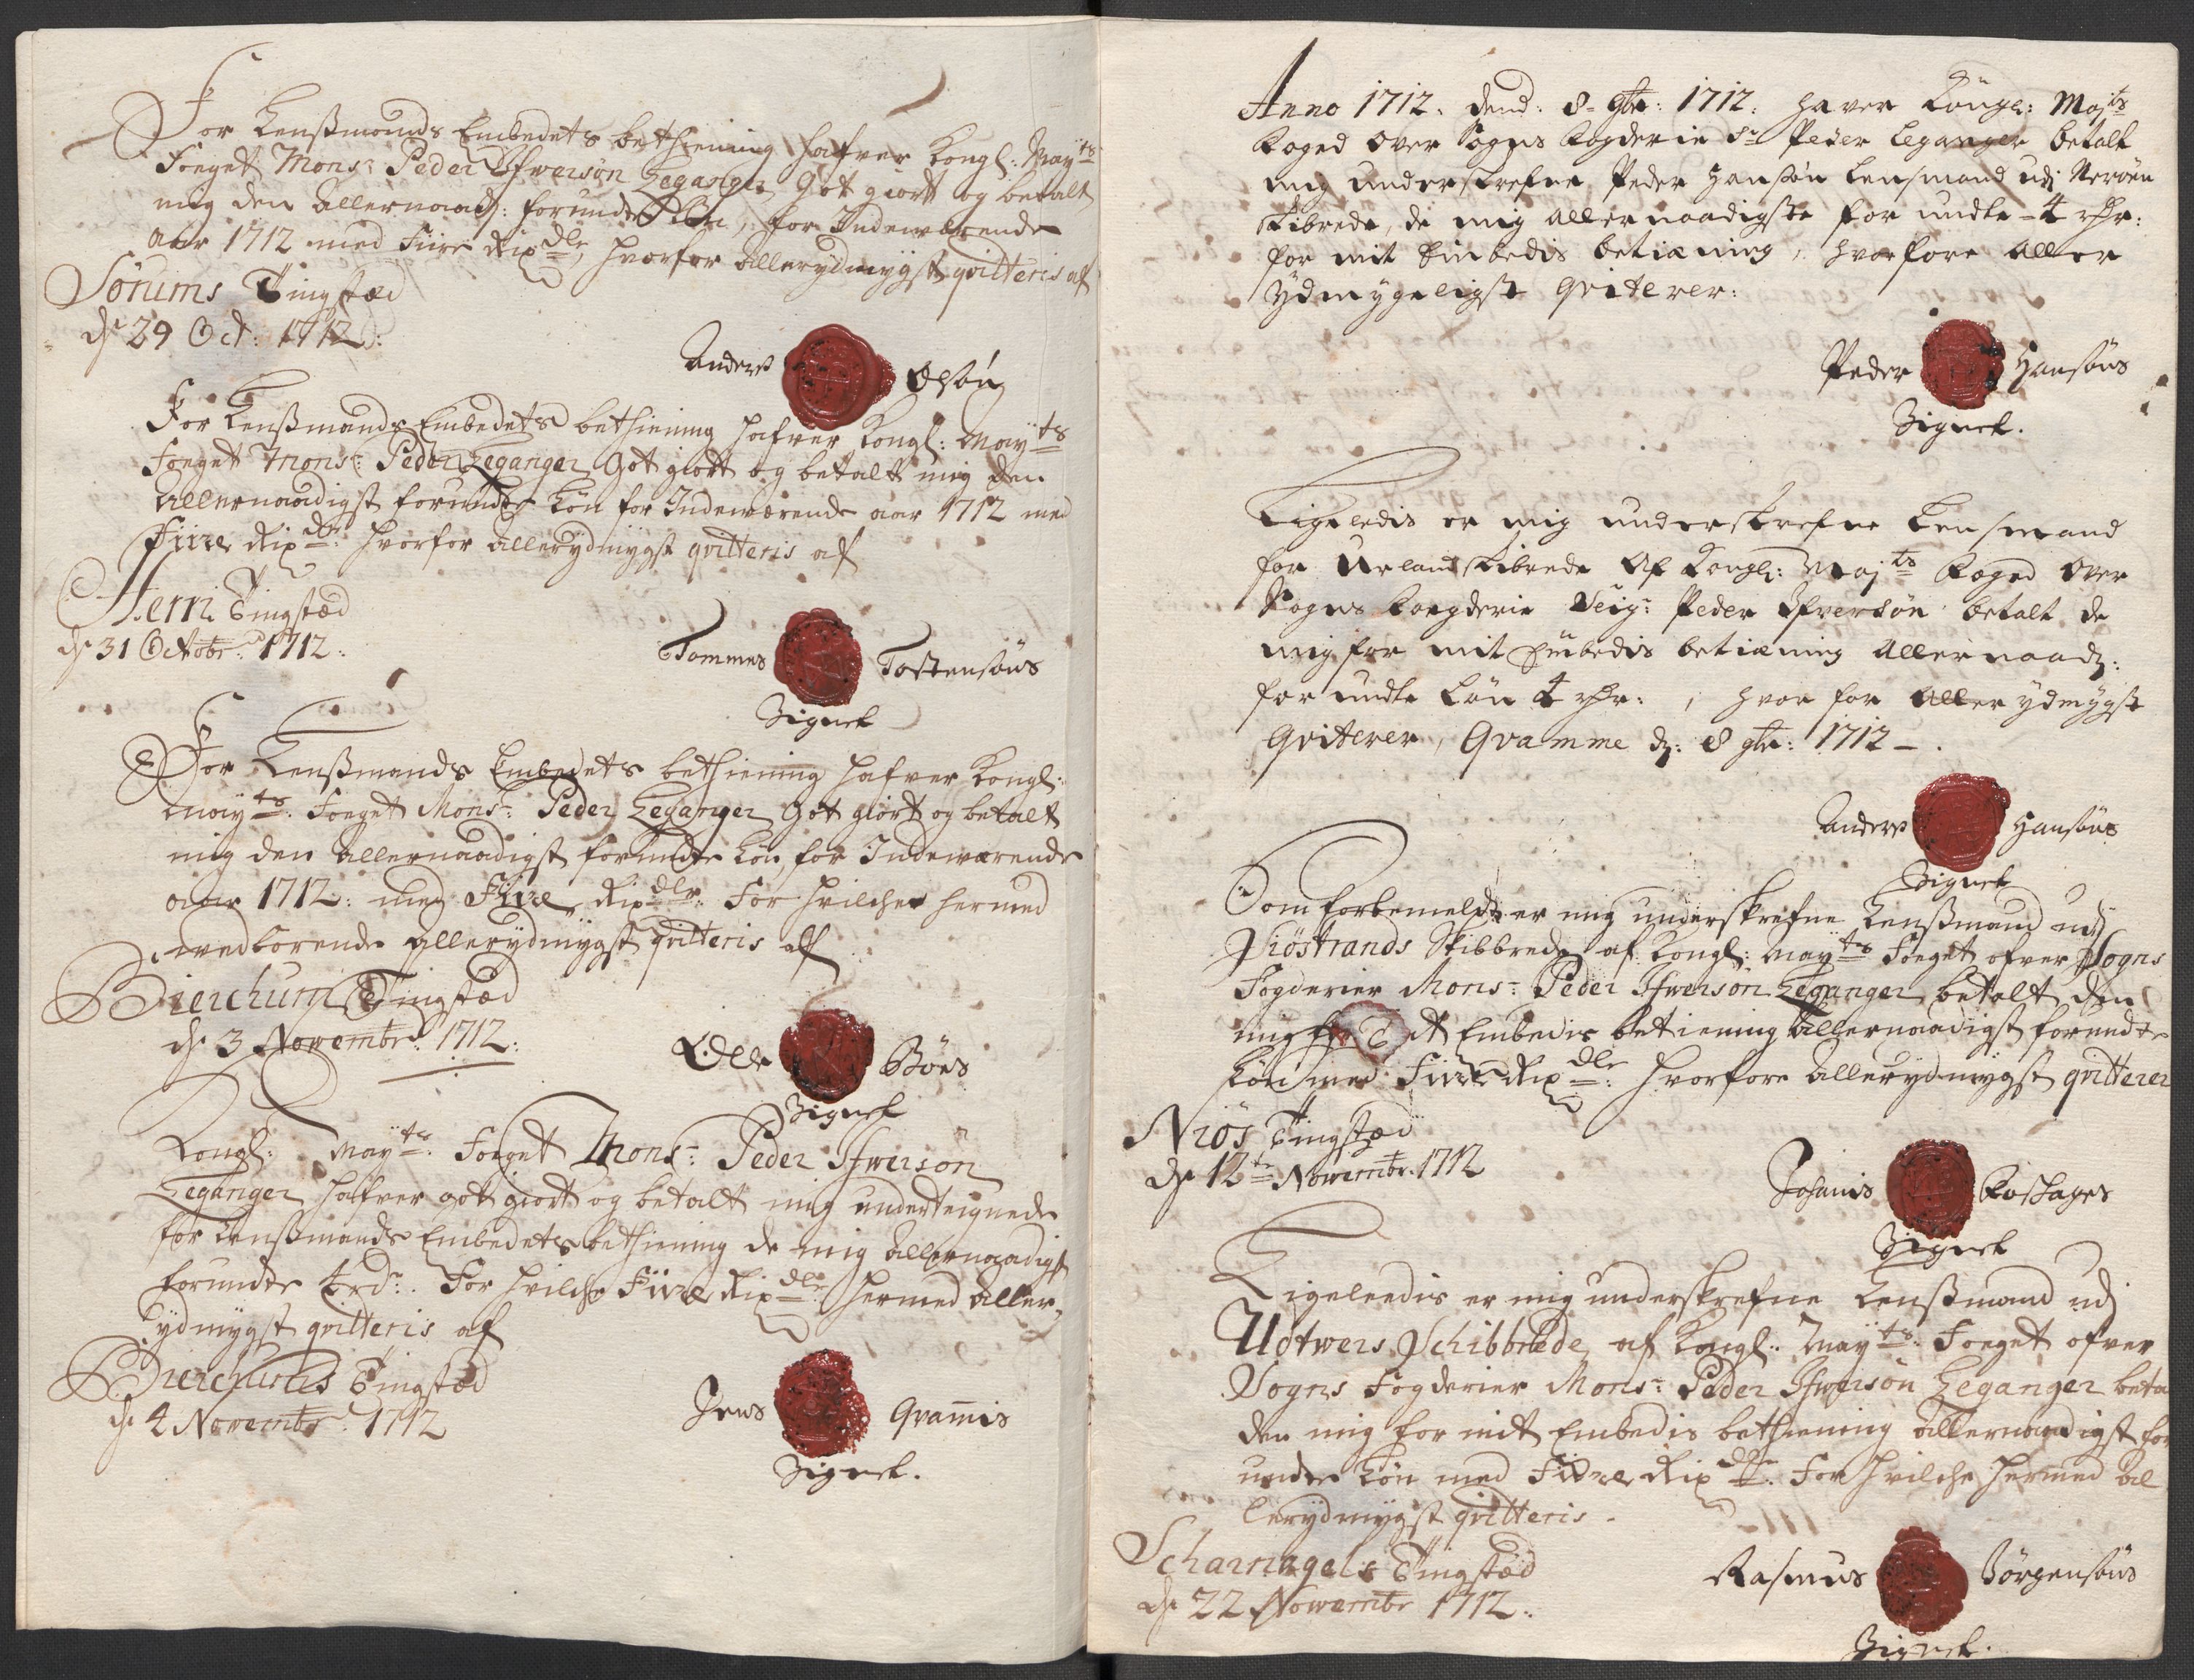 For Lenßmands Embedets bethiening hafver Kongl: Maÿts
Foeget Monsr: Peder Ifwersøn Leganger Got giort og betalt
mig den Allernaads: forundte Løn, for Indewærende
Aar 1712 med Fiire Rixdlr, hvorfor Allerydmygst qvitteris af
Sørums Tingstæd
dn 29 Oct: 1712:
Anders Olsøn
For Lenßmands Embedets bethiening hafver Kongl: Maÿts
Foeget Monsr: Peder Leganger Got giort og betalt mig den
Allernaadigst forundte Løn for Indewærende aar 1712 med
Fiire Rixdlr: hvorfor Allerydmygst qvitteris af
Tingstæd
dn 31 Octobr: 1712:
Tommes Tostensøns
Signet
For Lenßmands Embedets bethiening hafver Kongl:
Maÿts: Foeget Monsr: Peder Leganger Got giort og betalt
mig den Allernaadigst forundte Løn, for Indewærende
aar 1712: med Fiire Rixdlr: For hvilche hermed
vedbørende Allerydmygst qvitteris af
Bierchum Tingstæd
dn 3 Novembr: 1712:
Bøes
Signet
Kongl: Maÿts: Foeget Monsr: Peder Ifwersøn
Leganger hafver got giort og betalt mig underteignede
for Lenßmands Embedets bethiening de mig Allernaadigst
forundte 4 rdr: For hvilche Fiire Rixdlr: hermed Aller-
ydmygst qvitteris af
Bierchums Tingstæd
dn 4 Novembr: 1712
Jens Qvammis
Signet.
Anno 1712. dend: 8 - 9br: 1712: haver Kongl: Majts
Foged over Sogns Fogderie Sr Peder Leganger betalt
mig underskrefne Peder Hansøn Lensmand udj Nerøen
Skibrede, de mig allernaadigste for undte - 4 rdr:
for mit Embedis betiening, hvorfore aller
ydmygeligst Qviterer:
Peder Hansøns
Signet.
Ligeledis er mig underskrefne Lensmand
for Urland Skibrede af Kongl: Majts Foged over
Sogns Fogderie Seigr: Peder Ifversøn betalt de
mig for mit Embedis betiening Allernaadg:
for undte Løn 4 rdr: , hvor for Aller ydmygst
Qviterer, Qvamme dn: 8 9br: 1712 - .
Anders Hansøns
Signet
Som forbemeldte er mig underskrefne Lenßmand udj
Siøstrands Skibbrede af Kongl: Maÿts Foeget ofver Sogns
Fogderier Monsr: Peder Ifwersøn Leganger betalt den
mig for et Embedis betiening Allernaadigst forundte
Løn med Fiire Rixdlr: hvorfore Allerydmygst qvitterer
Niøs Tingstæd
dn 12te Novembr. 1712
Johanis
Signet
Ligeleedis er mig underskrefne Lenßmand udj
Udtwers Schibbrede af Kongl: Maÿts: Foeget ofver
Sogns Fogderier Monsr: Peder Ifwersøn Leganger beta
den mig for mit Embedis bethiening Allernaadigst for
undte Løn med Fiire Rixdlr: For hvilche hermed Al
lerydmygst qvitteris.
Scharnagels Tingstæd
dn 22 Novembr 1712:
Rasmus Børgensøns
Signet.